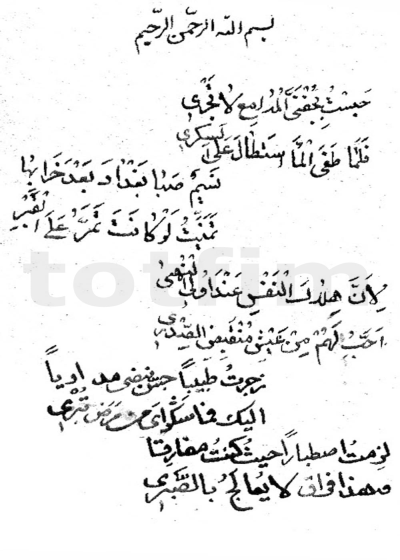 بسم الله الرحمن الرحيم
حبست بجفني المدامع لا تجري
فلما طغى الماء استطال على السكري
نسيم صبا بغداد بعد خرابها
تمنيت لو كانت تمر على القبر
لان هلاك النفس عند اولي النهى
احب لهم من عيش منقبض الصدري
زجرت طبيبا جس نبضي مداويا
اليك فما شكواي من مرض تبري
لزمت اصطبارا حيث كنت مفارقا
وهذا فراق لا يعالج بالصبري
totfim